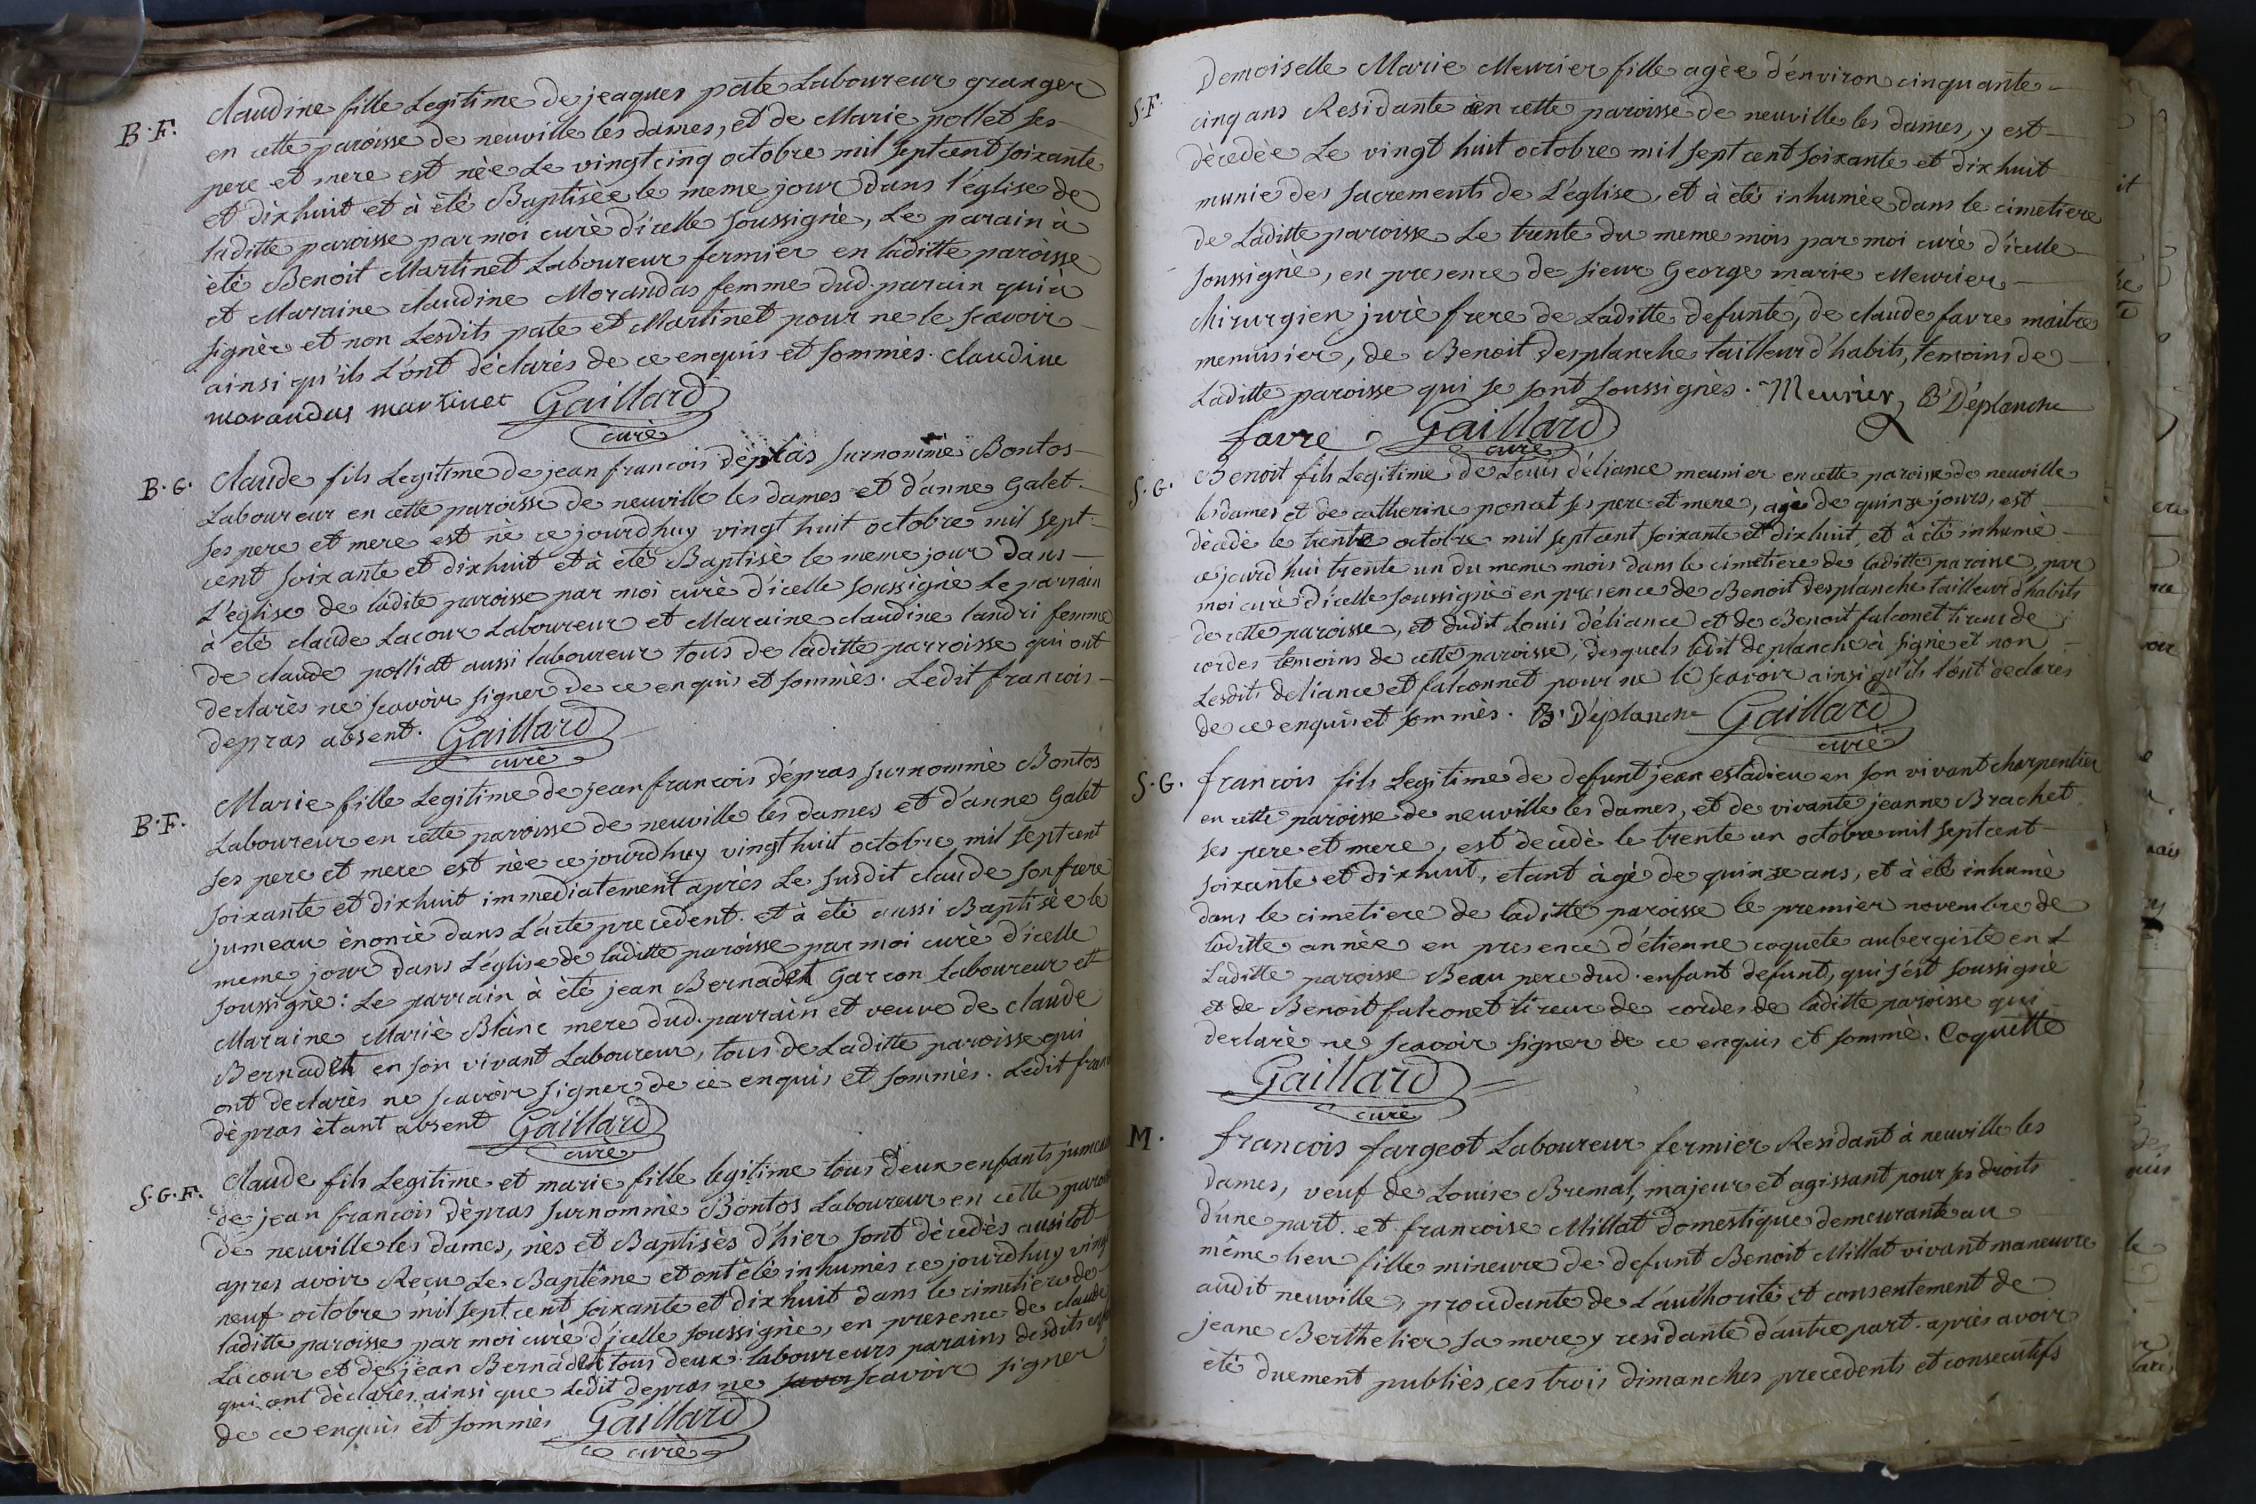 B. F.
claudine fille Legitime de jeaques pate Laboureur granger
en cette paroisse de neuville les dames, et de Marie pollet ses
pere et mere est nèe Le vingt cinq octobre mil sept cent soixante
et dixhuit et à èté Baptisèe le meme jour dans l'église de
laditte paroisse par moi curè d'icelle soussignè, Le parain à
èté Benoit Martinet Laboureur fermier en laditte paroisse
et Maraine claudine Morandas femme dud. parain qui à
signèe et non Lesdits pate et Martinet pour ne le scavoir
ainsi qu'ils l'ont dèclarés de ce enquis et sommès. claudine
morandas martinet Gaillard
curè
B. G.
claude fils Legitime de jean francois dèpras surnommè Bontos
Laboureur en cette paroisse de neuville les dames et d'anne Galet
ses pere et mere est nè ce jourdhuy vingt huit octobre mil sept
cent soixante et dixhuit et à èté Baptisè le meme jour dans
L'eglise de ladite paroisse par moi curè d'icelle soussignè Le parrain
à èté claude Lacour Laboureur et Maraine claudine landri femme
de claude polliat aussi laboureur tous de laditte parroisse qui ont
declarès ne scavoir signer de ce enquis et sommès. Ledit francois
depras absent. Gaillard
curè
B. F.
Marie fille Legitime de jean francois dépras surnommè Bontos
Laboureur en cette paroisse de neuville les dames et d'anne Galet
ses pere et mere est nèe ce jourdhuy vingt huit octobre mil sept cent
soixante et dixhuit immediatement après Le susdit claude son frere
jumeau ènoncè dans L'acte precèdent. et à èté aussi Baptisèe le
meme jour dans L'église de laditte paroisse par moi curè d'icelle
soussignè: Le parrain à èté jean Bernadet Garcon Laboureur et
Maraine Marie Blanc mere dud. parrain et veuve de claude
Bernadet en son vivant Laboureur, tous de Laditte paroisse qui
ont declarès ne scavoir signer de ce enquis et sommès. Ledit fran
dèpras ètant absent Gaillard
curè
S. G. F.
claude fils Legitime et marie fille legitime tous deux enfants jumeau
de jean francois dèpras surnommè Bontos Laboureur en cette paroi
de neuville les dames, nès et Baptisès d'hier sont dècedès ausitot
apres avoir Reçu Le Baptême et ont èté inhumès ce jourdhuy vingt
neuf octobre mil sept cent soixante et dixhuit dans le cimetiere de
laditte paroisse par moi curè d'icelle soussignè, en presence de claude
Lacour et de jean Bernadet tous deux laboureurs parains desdits enf
qui ont dèclarès ainsi que Ledit depras ne scavoir signer
de ce enquis et sommès Gaillard
curè
S. F.
Demoiselle Marie Meurier fille agèe d'environ cinquante
cinq ans Residante en cette paroisse de neuville les dames, y est
dècedèe Le vingt huit octobre mil sept cent soixante et dixhuit
munie des sacrements de L'église, et à èté inhumèe dans le cimetiere
de Laditte paroisse Le trente du meme mois par moi curè d'icelle
soussignè, en presence de sieur George marie Meurier
chirurgien jurè frere de Laditte defunte, de claude favre maitre
menuisier, de Benoit desplanche tailleur d'habits, temoins de
Laditte paroisse qui se sont soussignès. Meurier, B D'éplanche
favre Gaillard
curè
S. G.
Benoit fils Legitime de Louis dèliance meunier en cette paroisse de neuville
les dames et de catherine poncet ses pere et mere, agè de quinze jours, est
dècedè le trente octobre mil sept cent soixante et dixhuit, et à èté inhumè
ce jourd'hui trente un du meme mois dans le cimetiere de laditte paroisse, par
moi curè d'icelle soussignè en presence de Benoit desplanche tailleur d'habits
de cette paroisse, et dudit Louis dèliance et de Benoit falconet tireur de
cordes temoins de cette paroisse, desquels ledit deplanche à signè et non
Lesdits deliance et falconnet pour ne le scavoir ainsi qu'ils l'ont declarès
de ce enquis et sommès. B. D'éplanche Gaillard
curè
S. G.
francois fils Legitime de defunt jean estadieu en son vivant charpentier
en cette paroisse de neuville les dames, et de vivante jeanne Brachet
ses pere et mere, est decedè le trente un octobre mil sept cent
soixante et dixhuit, etant àgè de quinze ans, et à èté inhumè
dans le cimetiere de laditte paroisse le premier novembre de
laditte année en presence d'étienne coquete aubergiste en L
Laditte paroisse Beau pere dud. enfant defunt, qui s'est soussignè
et de Benoit falconet tireur de cordes de laditte paroisse qui
declarè ne scavoir signer de ce enquis et sommè. Coquette
Gaillard
curè
M.
francois fargeot Laboureur fermier Residant à neuville les
dames, veuf de Louise Bremal, majeur et agissant pour ses droits
d'une part. et francoise Millat domestique demeurante au
même lieu fille mineure de defunt Benoit Millat vivant maneuvre
audit neuville, procedante de L'authorité et consentement de
jeane Berthelier sa mere y residante d'autre part. après avoir
èté duement publiès, ces trois dimanches precedents et consecutifs